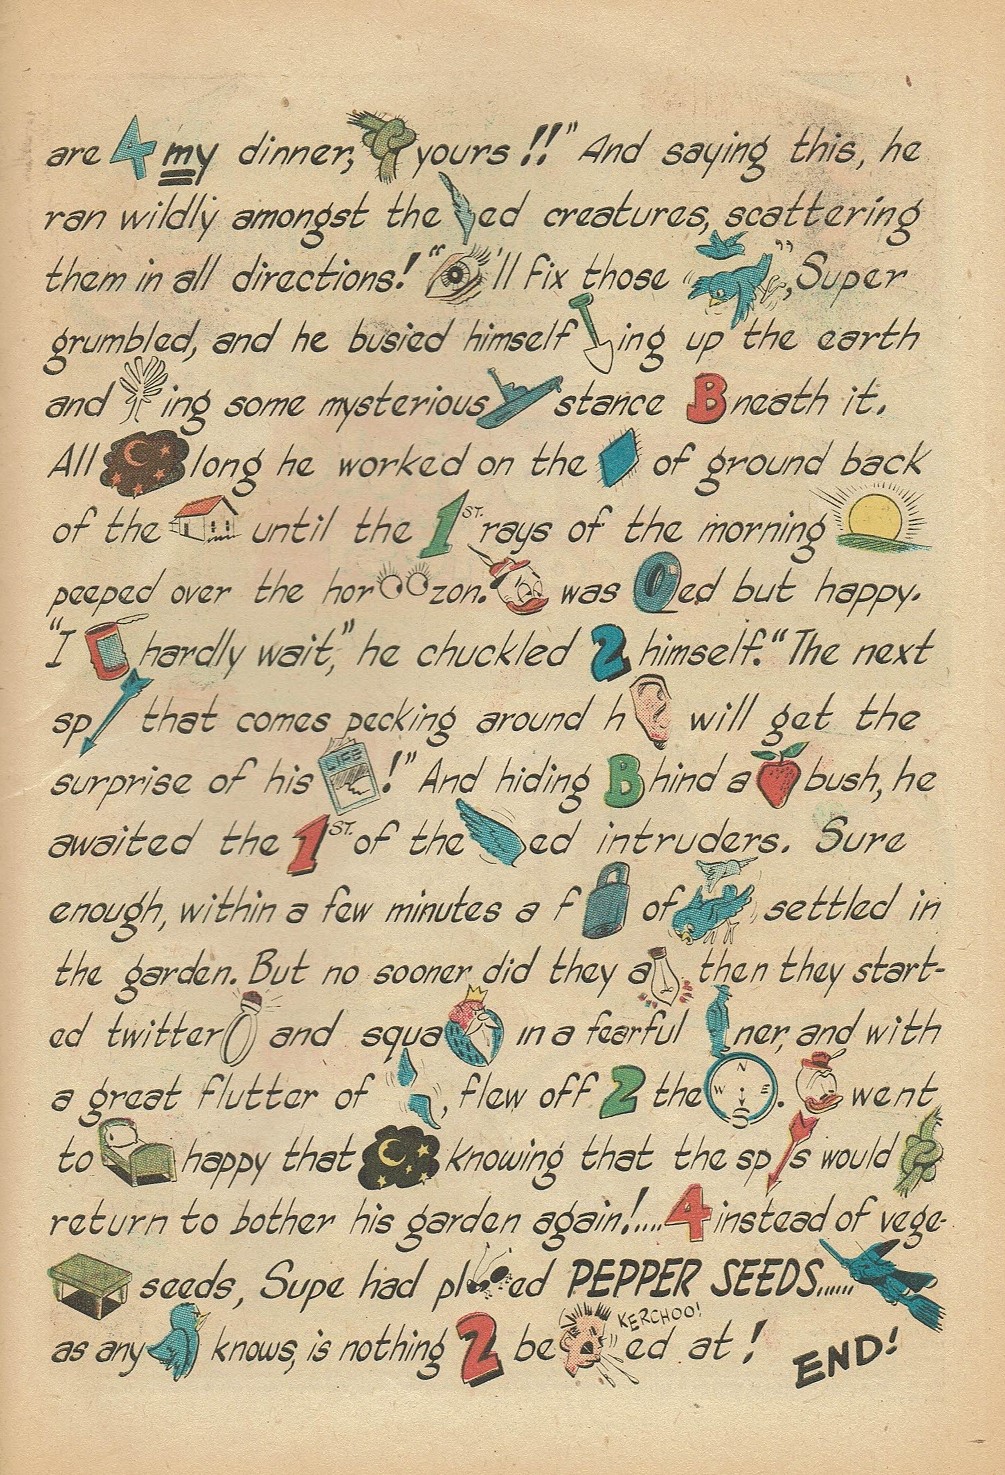 are 4 my dinner, yours !!" And saying this, he
ran wildly amongst the ed creatures, scattering
them in all directions! " 'll fix those " ", Super
grumbled, and he busied himself ing up the earth
and ing some mysterious stance B neath it.
All long he worked on the of ground back
of the until the 1ST. rays of the morning
peeped over the hor zon. was ed but happy.
"I hardly wait," he chuckled 2 himself. "The next
sp that comes pecking around h will get the
surprise of his LIFE !" And hiding B hind a bush, he
awaited the 1ST. of the ed intruders. Sure
enough, within a few minutes a f of settled in
the garden. But no sooner did they a then they start-
ed twitter and squa in a fearful ner, and with
a great flutter of , flew off 2 the N W E S . went
to happy that knowing that the sp s would
return to bother his garden again!.... 4 instead of vege-
seeds, Supe had pl ed PEPPER SEEDS......
as any knows, is nothing 2 be KERCHOO! ed at !
END!